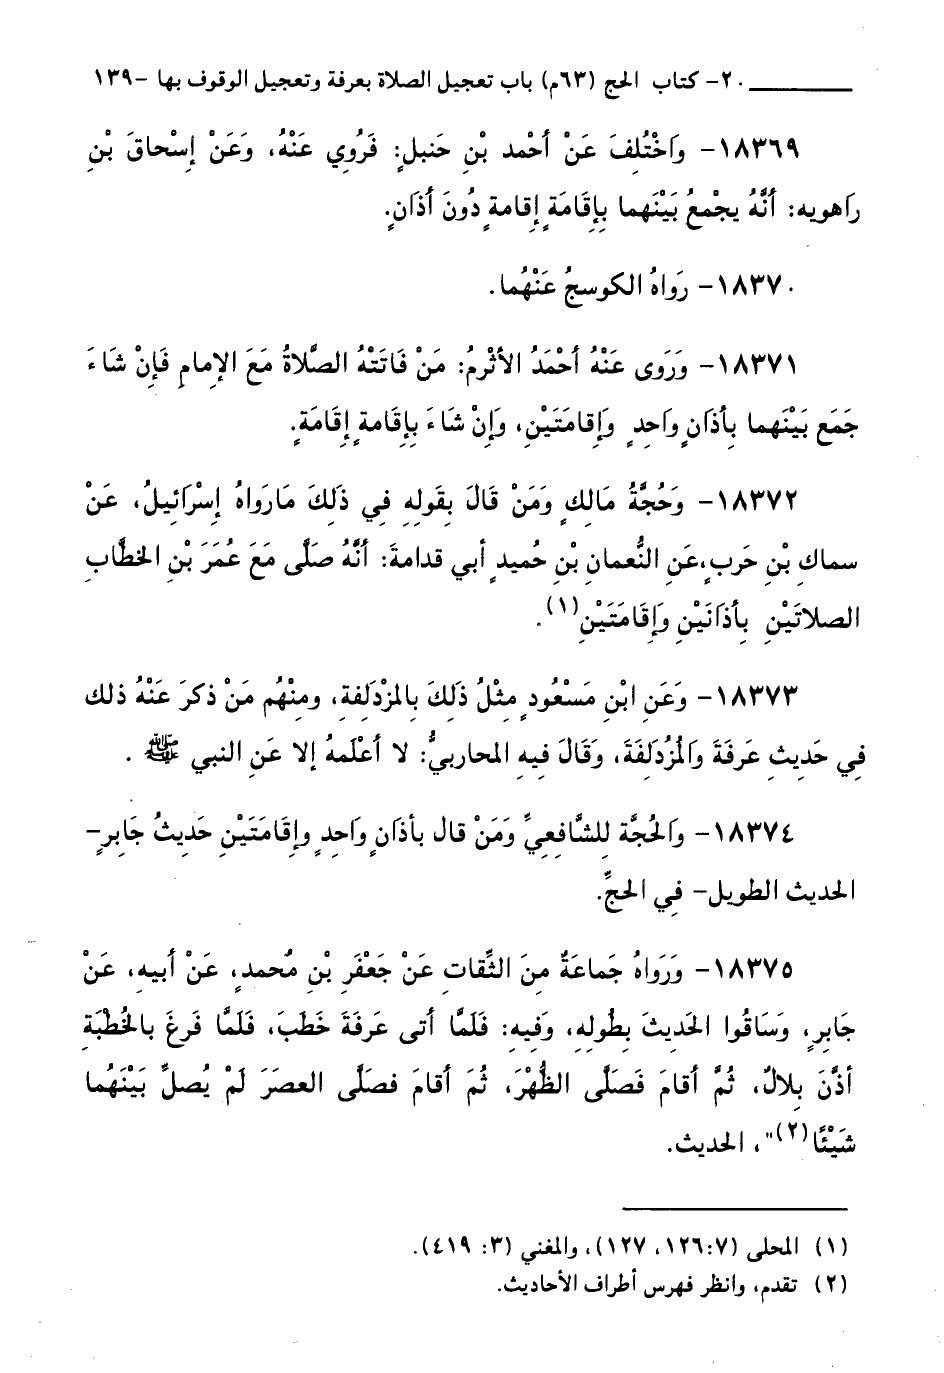 ٢٠- كتاب الحج (٦٣م) باب تعجيل الصلاة بعرفة وتعجيل الوقوف بها -١٣٩
١٨٣٦٩- واَخْتُلِفَ عَنْ أَحْمد بْنِ حَنبلٍ: فَرُوِي عَنْهُ، وَعَنْ إسْحاقَ بْنِ
راَهويه: أنَّهُ يجْمعُ بَيْنَهما بِإِقَامَةٍ إقامةٍ دُونَ أذَانٍ.
١٨٣٧٠- رَواهُ الكوسجُ عَنْهُما.
١٨٣٧١- وَرَوى عَنْهُ أحْمَدُ الأثْرمُ: مَنْ فَاتَتْهُ الصَّلاةُ مَعَ الإمامِ فَإِنْ شَاءَ
جَمَع بَيْنَهما بِأذانٍ واَحِدٍ وَإِقامَتَيْنِ، وَإِنْ شَاءَ بِإِقَامةٍ إِقَامَةٍ.
١٨٣٧٢- وَحُجَّةُ مَالكٍ وَمَنْ قَالَ بِقَولِهِ فِي ذَلِكَ مَارَواهُ إِسْرَائيلُ، عَنْ
سماك بْنِ حَربٍ،عَنِ النُّعمانِ بْنِ حُميدٍ أبي قدامةَ: أنَّهُ صَلَّى مَعَ عُمَرَ بْنِ الخطَّابِ
الصلاتَيْنِ بِأذانَيْنِ وَإِقَامَتَيْنِ(١).
١٨٣٧٣- وَعَنِ ابْنِ مَسْعُودٍ مثْلُ ذَلِكَ بِالمزْدَلفةِ، ومِنْهُم مَنْ ذكرَ عَنْهُ ذلك
فِي حَدِيثِ عَرفَةَ وَالمُزْدَلفَةَ، وَقَالَ فِيهِ المحاربيُّ: لا أعْلَمهُ إلا عَنِ النبي ﷺ .
١٨٣٧٤- واَلحُجَّة للشَّافعِيِّ وَمَنْ قال بأذانٍ واَحِدٍ وإِقَامَتَيْنِ حَدِيثُ جَابرٍ-
الحديث الطويل- فِي الحجِّ.
١٨٣٧٥- وَرَواهُ جَماعَةٌ مِنَ الثِّقات عَنْ جَعْفَر بْنِ مُحمدٍ، عَنْ أبيه، عَنْ
جَابرٍ، وَسَاقُوا الحَديثَ بِطُولِهِ، وَفِيهِ: فَلَمَّا أتى عَرفَةَ خَطَبَ، فَلَمَّا فَرغَ بِالخُطْبَةِ
أذَّنَ بِلالٌ، ثُمَّ أقَامَ فَصَلَّى الظُّهْرَ، ثُمَ أقامَ فصَلَّى العصَرَ لَمْ يُصلِّ بَيْنَهُما
شَيْئًا(٢)"، الحديث.
(١) المحلى (٧:١٢٦، ١٢٧)، والمغني (٣: ٤١٩).
(٢) تقدم، وانظر فهرس أطراف الأحاديث.